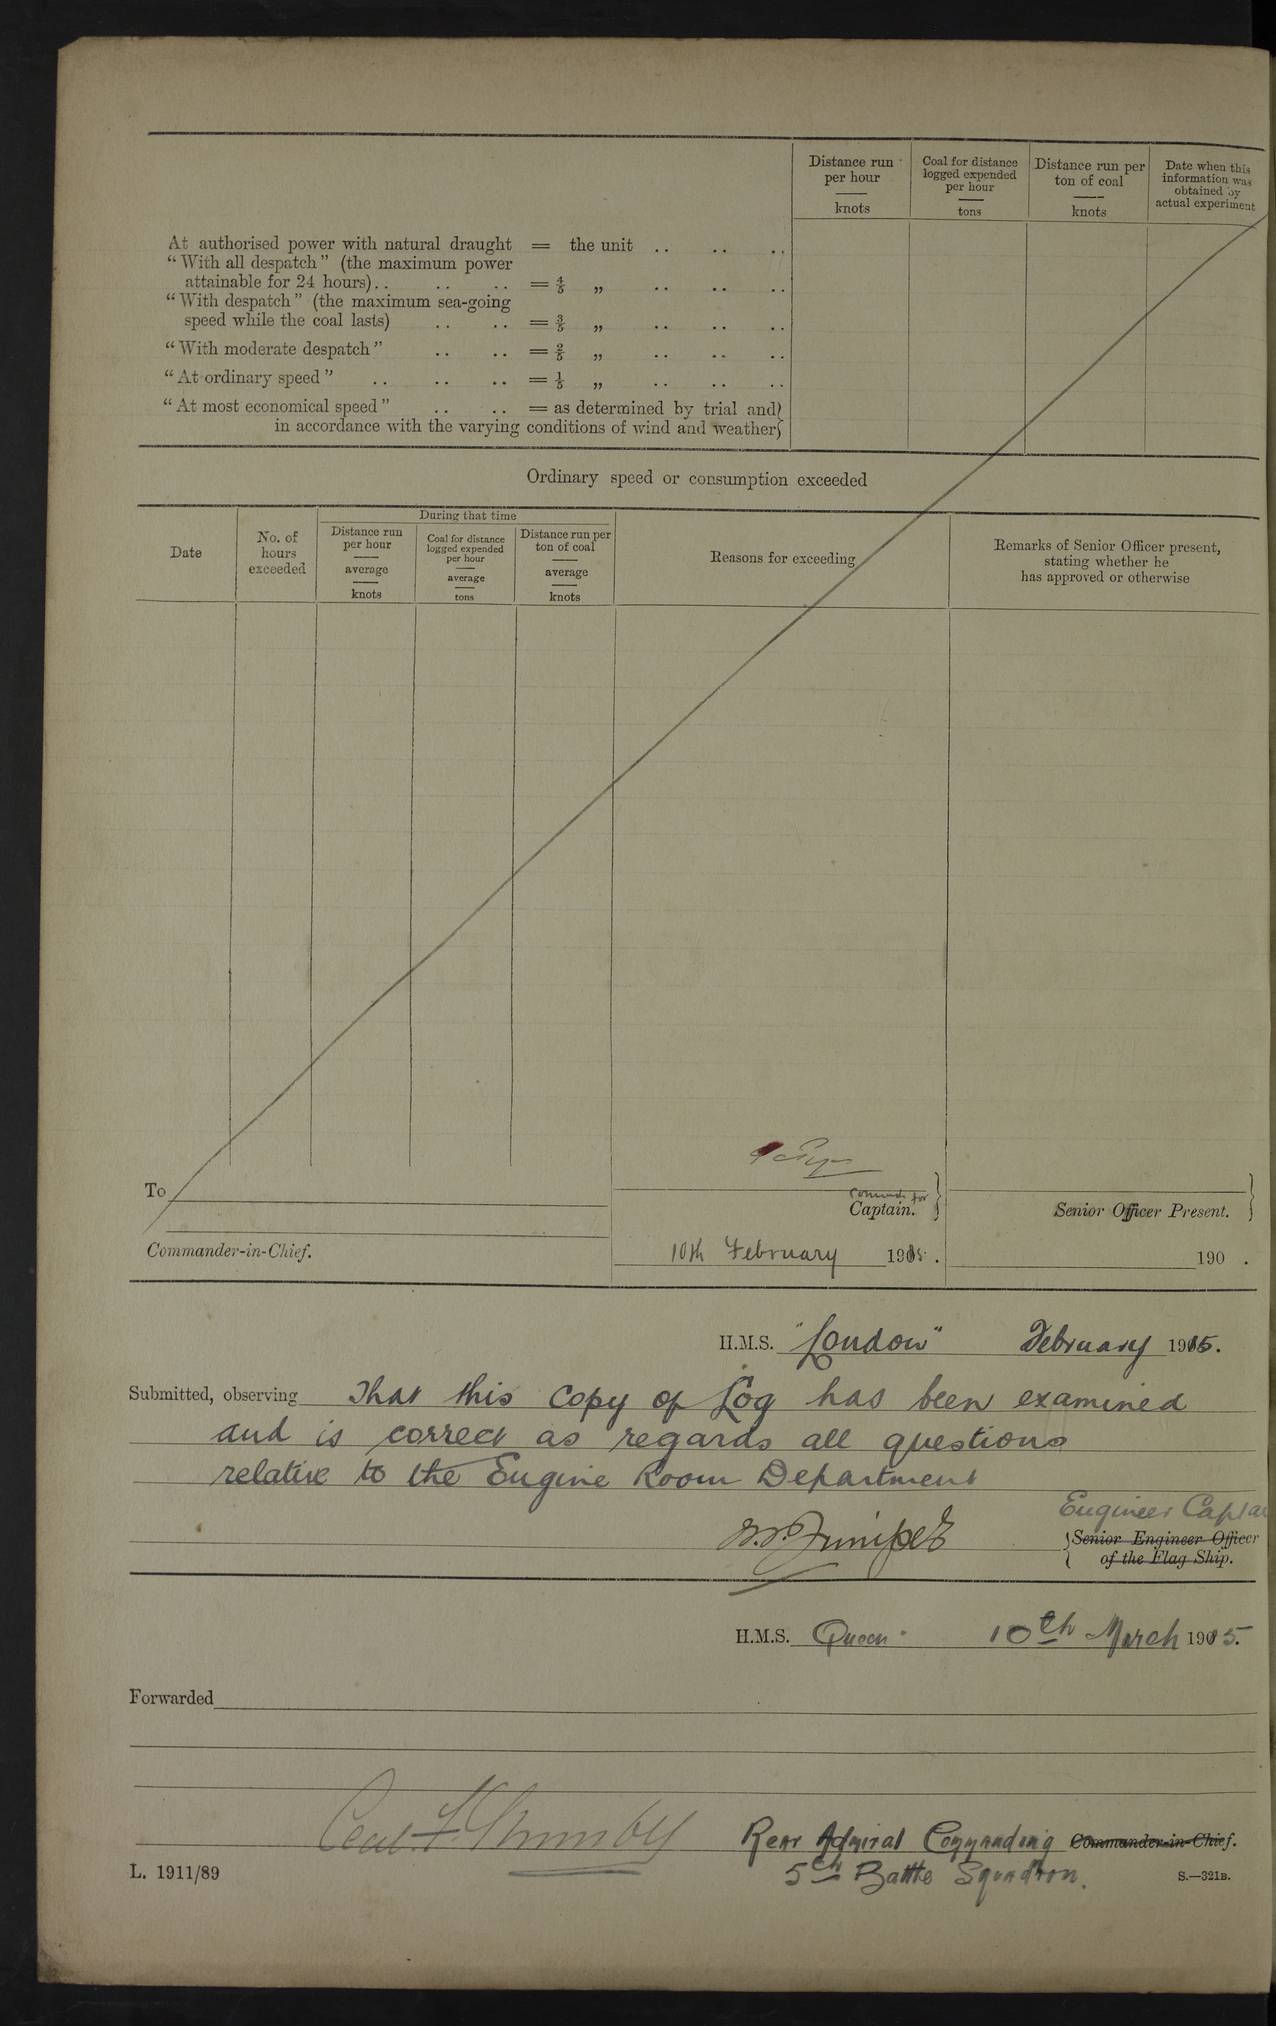 Distance run per hour knots
Coal for distance logged expended per hour tons
Distance run per ton of coal knots
Date when this information was obtained by actual experiment
At authorised power with natural draught = the unit .. .. ..
“With all despatch” (the maximum power
attainable for 24 hours) .. .. .. = 4/5 „ .. .. ..
“With despatch” (the maximum sea-going
speed while the coal lasts) .. .. = 3/5 „ .. .. ..
“With moderate despatch” .. .. = 2/5 „ .. .. ..
“At ordinary speed” .. .. .. = 1/5 „ .. .. ..
“At most economical speed” .. .. = as determined by trial and
in accordance with the varying conditions of wind and weather
Ordinary speed or consumption exceeded
Date
No. of hours exceeded
During that time
Distance run per hour average knots
Coal for distance logged expended per hour average tons
Distance run per ton of coal average knots
Reasons for exceeding
Remarks of Senior Officer present, stating whether he has approved or otherwise
To
for
Captain.
Senior Officer Present.
Commander-in-Chief.
10th February 1915.
190 .
H.M.S. "London" February 1915.
Submitted, observing That this copy of Log has been examined
and is correct as regards all questions
relative to the Engine Room Department
Engineer Captai
Juniper
Senior Engineer Officer
of the Flag Ship.
H.M.S. Queen 10th March 1915.
Forwarded
Cecil F. Thursby Rear Admiral Commanding Commander-in-Chief.
5th Battle Squadron.
L. 1911/89
S.—321B.